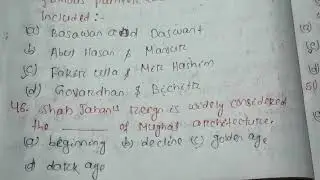 Included :-
(a) Basawan and Daswant
(b) Abul Hasan & Mansur
(c) Fakir ulla & Mir Hashim
(d) Govardhan & Bichitr
46. Shah Jahan's reign is widely considered
the ______ of Mughal architecture.
(a) beginning (b) decline (c) golden age
(d) dark age